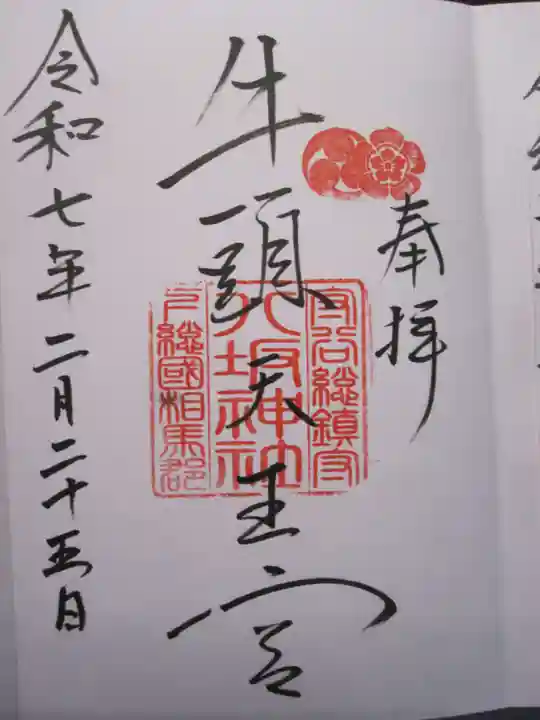 奉拝
守谷総鎮守
八坂神社
下総國相馬郡
牛頭天王宮
令和七年二月二十五日